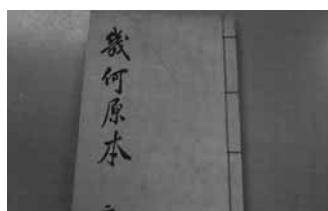 幾何原本